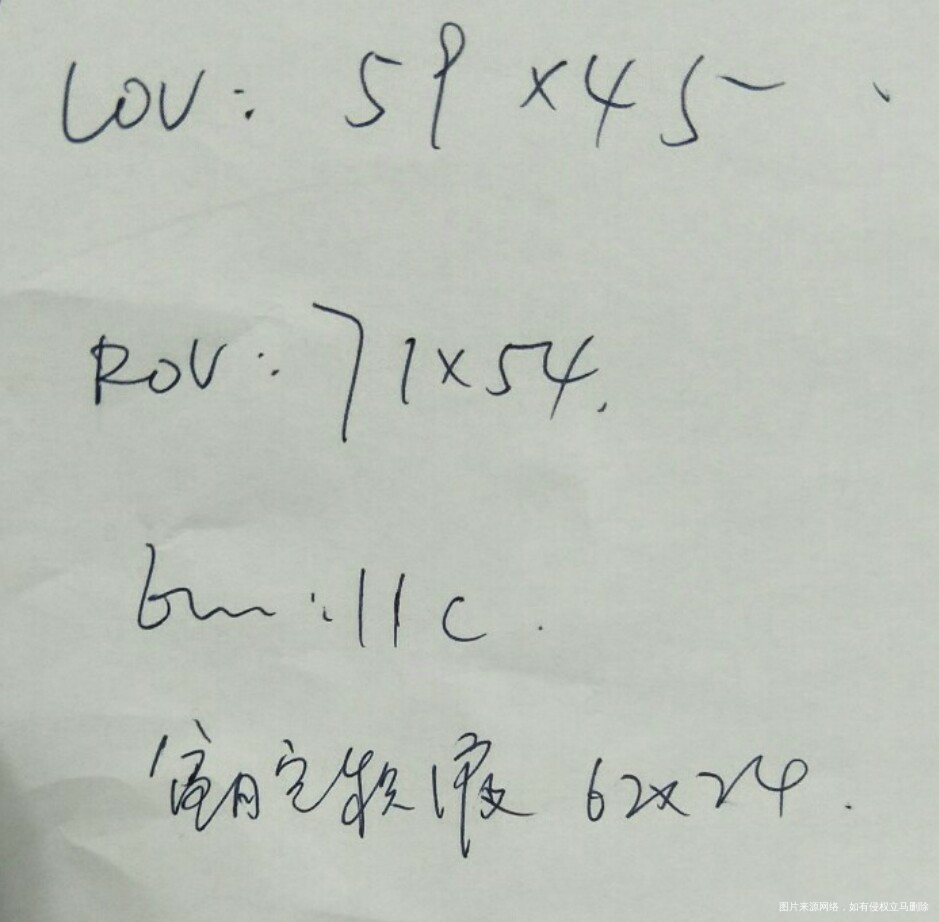 LOV: 59×45
ROV: 71×54.
Em: 11 c.
直肠窝积液 62×24.
图片来源网络，如有侵权立马删除